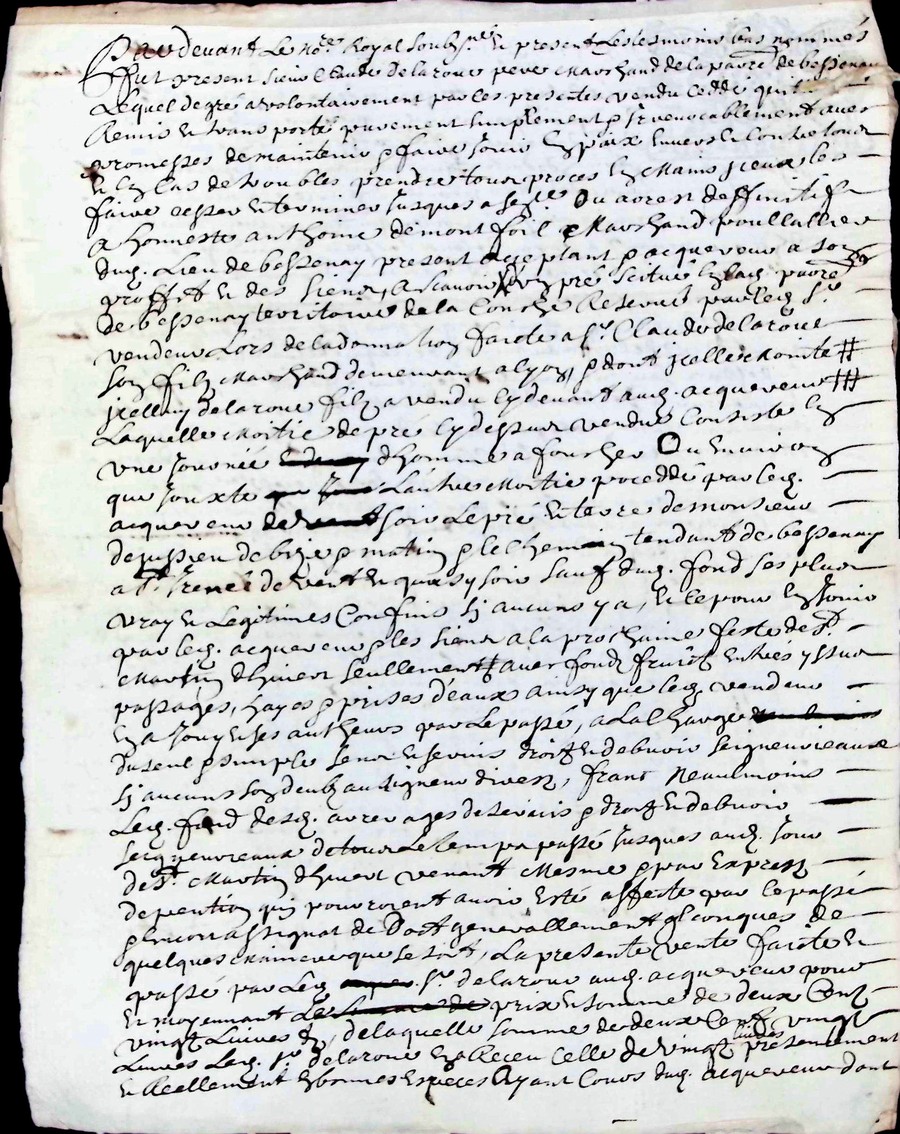 Pardevant Le no.re Royal soubz.né & present Les tesmoins bas nommés
ffut present sieur Claude delaroue pere Marchand de la parr.e de bessenay
Lequel de gré a volontairement par ces presentes vendu ceddé quité
Remis et transporté purement simplement & irrevocablement avec
promesses de maintenir & faire jouir En paix Envers et Contre tous
et En Cas de troubles prendre tour proces En Mains iceux les
faire cesser Et terminer jusques a sen.ce Ou arrest deffinitif
a honneste anthoine de montfoil Marchand
dud. Lieu de bessenay present acceptant & acquereur a son
proffit et des siens, A scavoir pré scitue En lad. parr.e
de bessenay territoire de la Reservé par led. S.r
vendeur Lors de la donnation faicte a s.r Claude delaroue
son filz Marchand demeurant a lyon, & dont icelle Moitié
icelluy delaroue filz a vendu Cy devant aud. acquereur
Laquelle Moitié de pré Cy dessus vendue Consiste En
une journée d'hommes a faucher Ou Environ
que jouxte L'autre Moitie procedée par led.
acquereur soir Le pré Et terre de monsieur
de & matin & le chemin tendant de bessenay
a S.t Irenée de vent Et sauf dud. fond ses plus
vray et Legitimes Confins sj aucuns y a, Et ce pour En jouir
par led. acquereur & les siens a la prochaine feste de S.t
Martin d'hiver seullement avec fondz fruictz Entrées yssues
passages, hayes & prises d'eaux ainsy que led. vendeur
En a jouy Et ses autheurs par Le passé, a La Charge
du seul & simple Cens Et servis droitz et debvoir seigneuriaux
sj aucuns son deubz au seigneur divers, franc Neaulmoins
Led. fond desd. arrerages de servis & droitz et debvoir
seigneuriaux de tout Le temps passé jusques aud. jour
de S.t Martin d'hiver venant Mesme & par Exprez
de pention qui pourroient avoir Esté affecté par le passé
& Encor assignat de Dott generallement q.lconques de
quelques Maniere que se soit, La presente vente faicte Et
passé par Led. S.r delaroue aud. acquereur pour
Et moyennant prix Et somme de deux Centz
vingt Livres , de laquelle somme de deux Centz vingt
Livres Led. S.r delaroue En a Receu Celle de vingt livres presentement
et Reellement En bonnes Especes Ayant Cours dud. acquereur dont